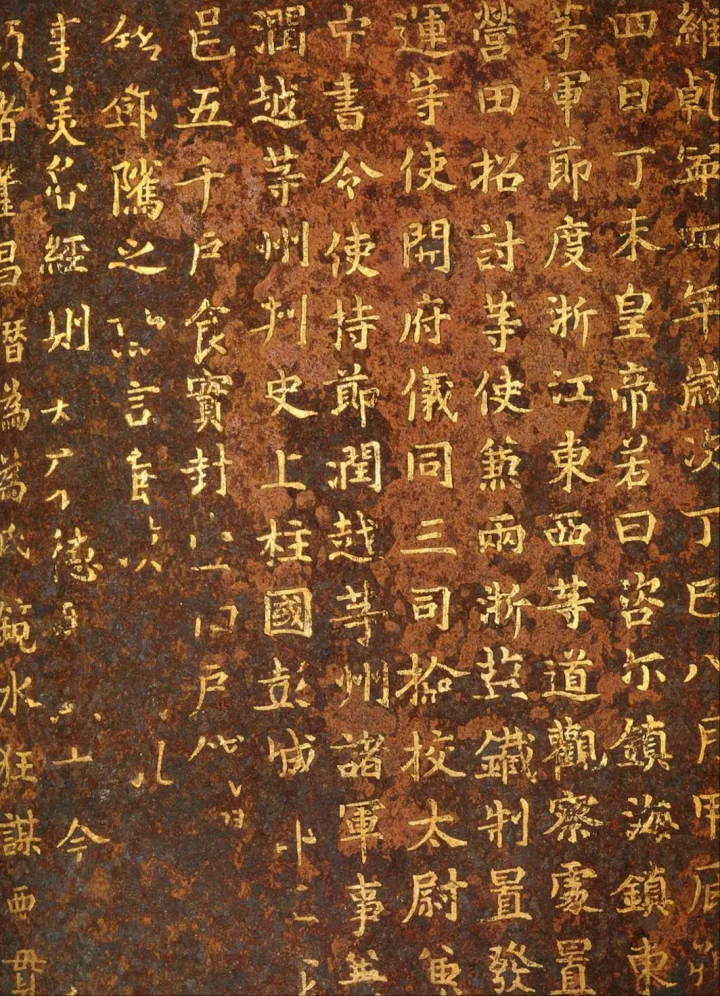 維乾寧四年歲次丁巳八月甲辰
四日丁未皇帝若曰咨尔鎮海鎮東
等軍節度浙江東西等道觀察處置
營田招討等使兼兩浙塩鐵制置發
運等使開府儀同三司撿校太尉兼
中書令使持節潤越等州諸軍事兼
潤越等州刾史上柱國彭城
邑五千戶食實封戶
銘鄧隲之言垂
事美魯經則德今
頃者董昌僣為鏡水狂謀貫